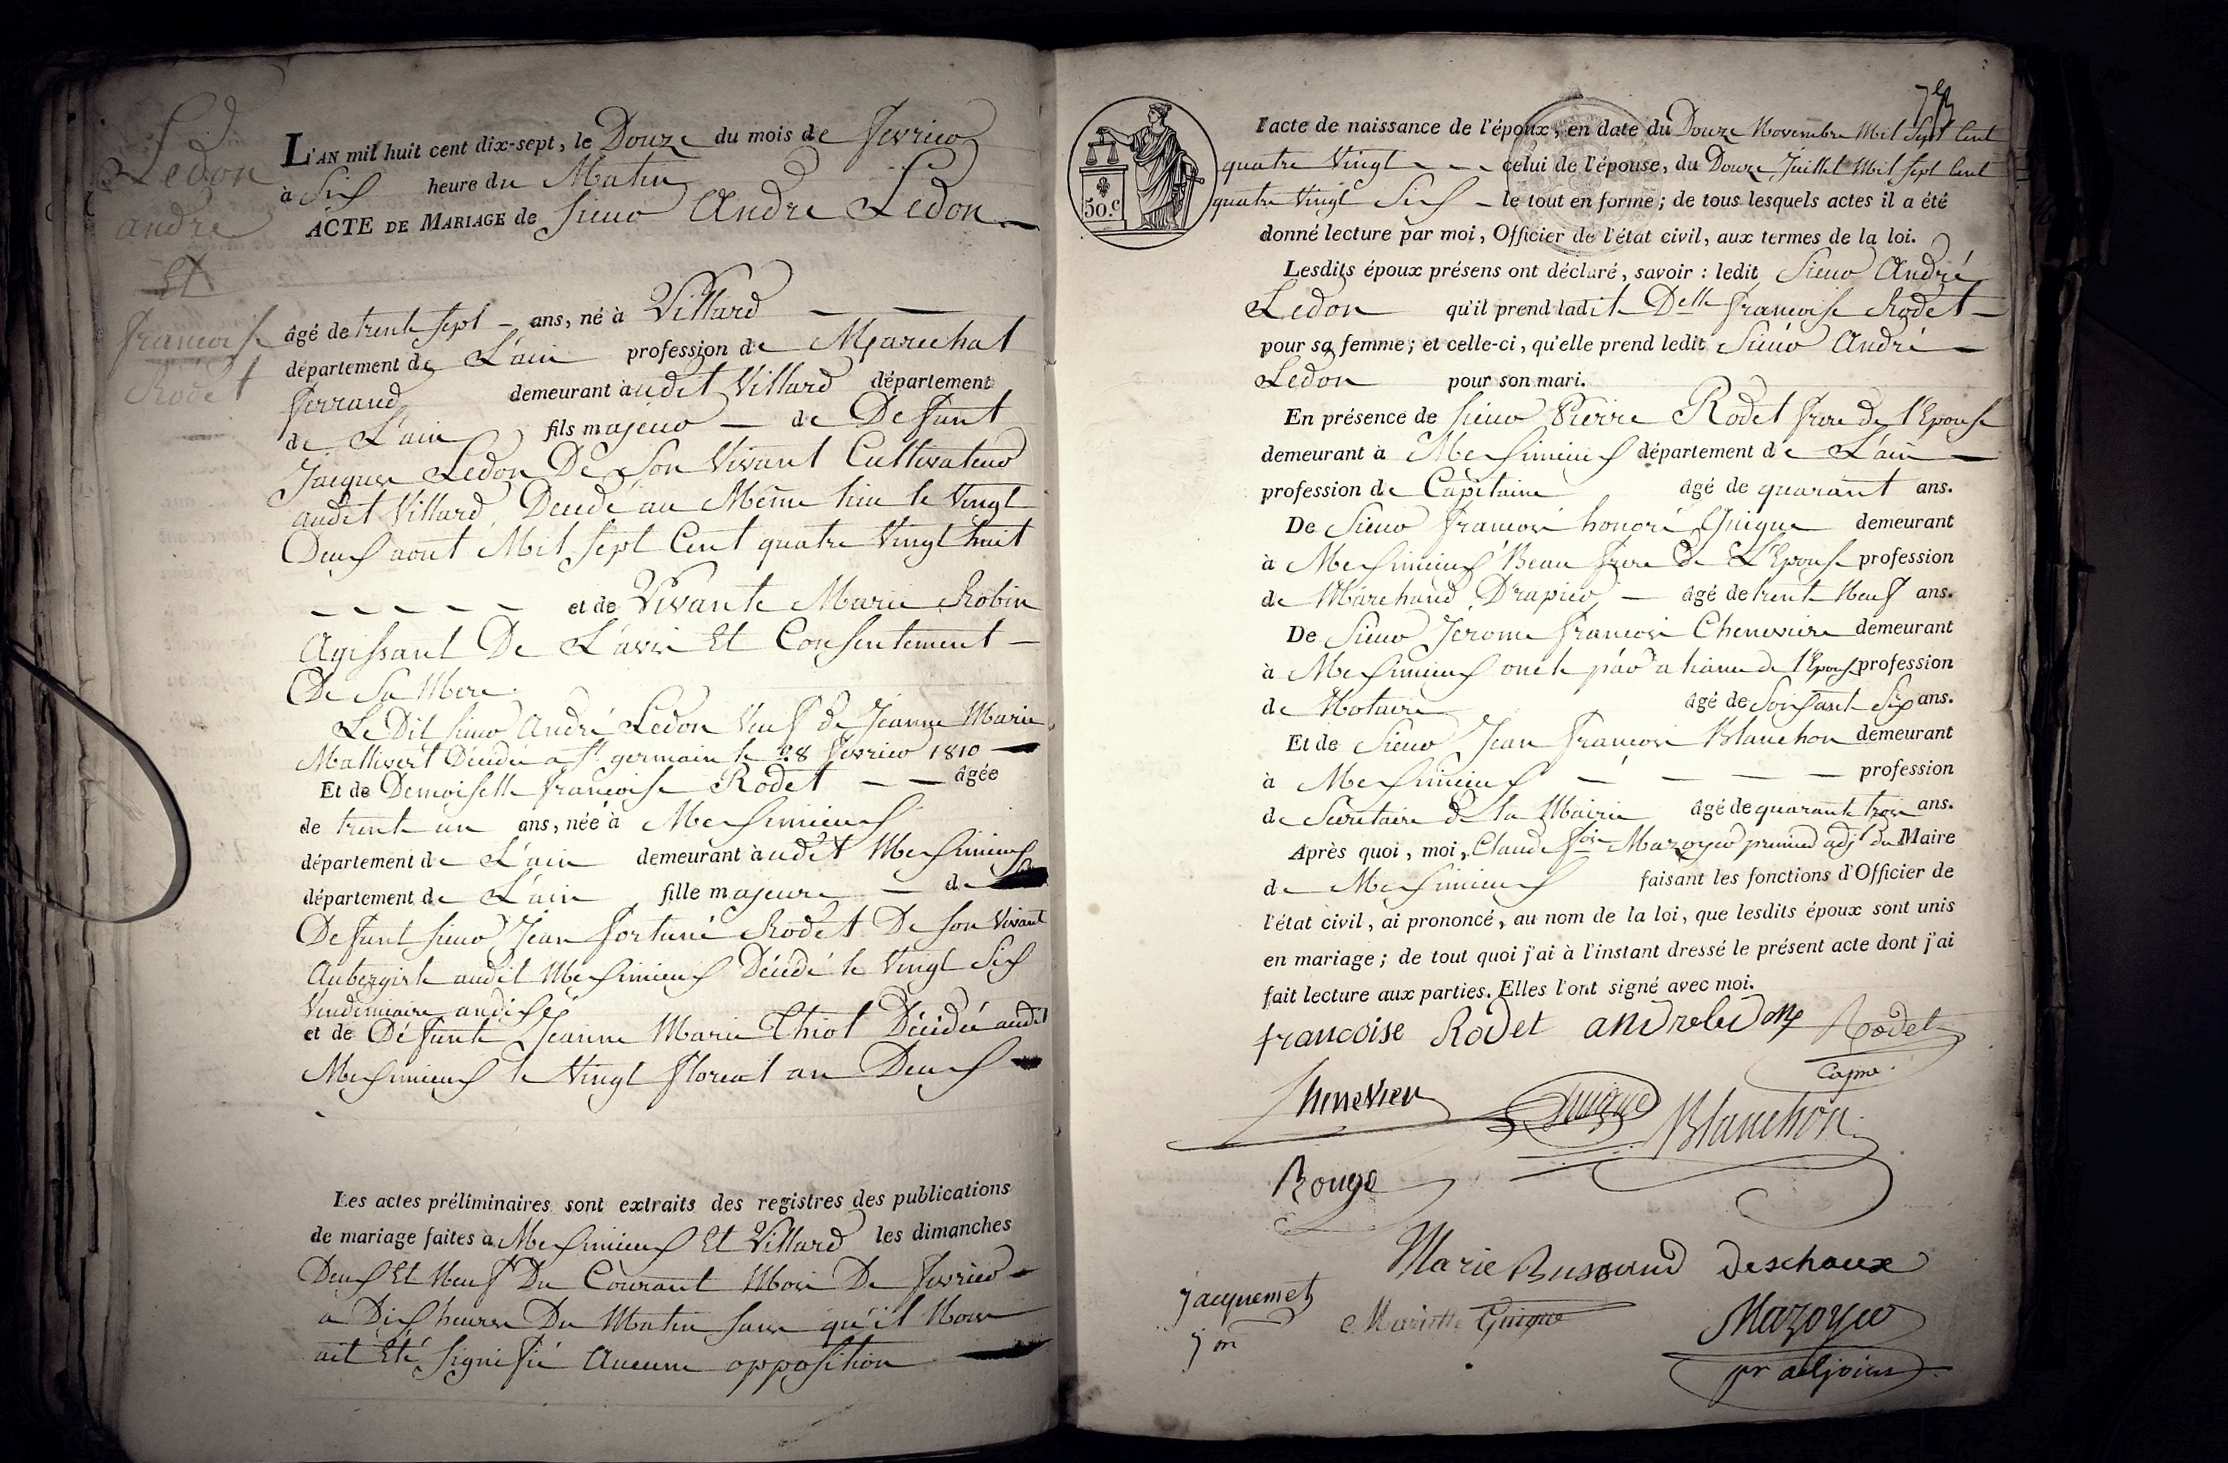 Ledon
andré
Et
francoise
Rodet
L'AN mil huit cent dix-sept, le Douze du mois de fevrier
à Six heure du Matin
ACTE DE MARIAGE de Sieur André Ledon
âgé de trente sept ans, né à Villard
département de L'ain profession de Marechal
ferrand demeurant audit Villard département
de L'ain fils majeur de Defunt
Jacques Ledon De Son Vivant Cultivateur
audit Villard Décédé au Même lieu le Vingt
Deux aout Mil Sept Cent quatre Vingt huit
et de Vivante Marie Robin
Agissant De L'avis Et Consentement
De Sa Mere
Le Dit Sieur André Ledon Veuf de Jeanne Marie
Mallivert Décédée a St germain le 28 fevrier 1810
Et de Demoiselle francoise Rodet âgée
de trente un ans, née à Meximieux
département de L'ain demeurant audit Meximieux
département de L'ain fille majeure de
Defunt Sieur Jean fortuné Rodet De Son Vivant
Aubergiste audit Meximieux Décédé le Vingt Six
Vendemiaire an dix
et de Défunte Jeanne Marie Thiot Décédée audit
Meximieux le Vingt floreal an Deux
Les actes préliminaires sont extraits des registres des publications
de mariage faites à Meximieux Et Villard les dimanches
Deux Et Neuf Du Courant Mois De fevrier
a Dix heures Du Matin Sans qu'il Nous
ait Eté Signifié Aucune opposition
50.c
l'acte de naissance de l'époux, en date du Douze Novembre Mil Sept Cent
quatre Vingt celui de l'épouse, du Douze Juillet Mil Sept Cent
quatre Vingt Six le tout en forme; de tous lesquels actes il a été
donné lecture par moi, Officier de l'état civil, aux termes de la loi.
Lesdits époux présens ont déclaré, savoir : ledit Sieur André
Ledon qu'il prend ladite Delle francoise Rodet
pour sa femme; et celle-ci, qu'elle prend ledit Sieur André
Ledon pour son mari.
En présence de Sieur Pierre Rodet frere de l'Epouse
demeurant à Meximieux département de L'ain
profession de Capitaine âgé de quarante ans.
De Sieur francois honoré Guigue demeurant
à Meximieux Beau frere De L'Epouse profession
de Marchand Drapier âgé de trente Neuf ans.
De Sieur Jerome francois Chenevier demeurant
à Meximieux oncle par alliance de l'Epouse profession
de Notaire âgé de Soixante Six ans.
Et de Sieur Jean francois Blanchon demeurant
à Meximieux profession
de Secretaire de la Mairie âgé de quarante trois ans.
Après quoi, moi, Claude fois Mazoyer premier adjt du Maire
de Meximieux faisant les fonctions d'Officier de
l'état civil, ai prononcé, au nom de la loi, que lesdits époux sont unis
en mariage; de tout quoi j'ai à l'instant dressé le présent acte dont j'ai
fait lecture aux parties. Elles l'ont signé avec moi.
francoise Rodet andre ledon Rodet
Capne
Chenevier Guigue Blanchon
Rouge
Marie Deschaux
jacquemet Mariette Guigue Mazoyer
pr adjoint